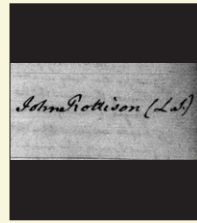 John Rottison (L.S)